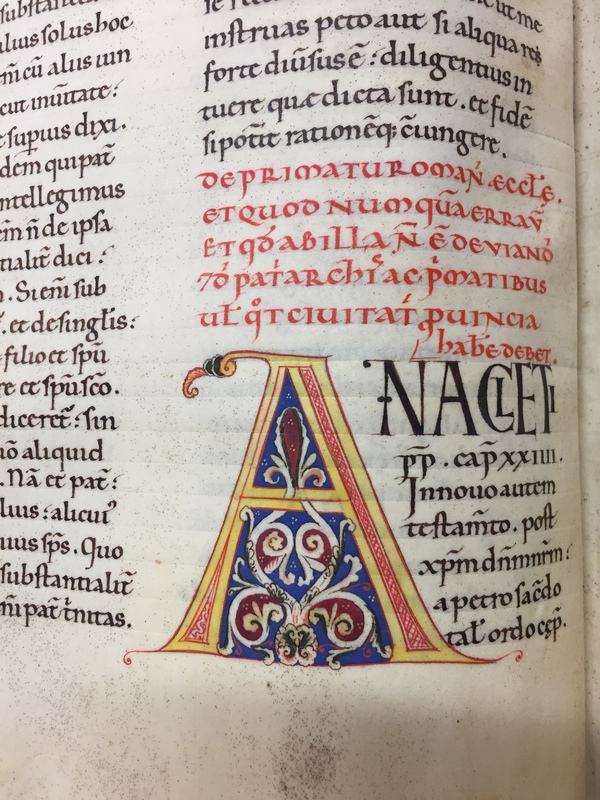 substantia
lius solus hoc
em̄ cū alus iun
cut inūitate:
superius dixi.
dem qui pat̄
ntellegimus
em n̄ de ipsa
tialit̄ dici:
n. Si em̄ sub
. et de singlis:
filio et spū
re et spū sc̄o.
diceret̄: sin
uō aliquid
. Nā et pat̄:
luus: alicui᾽
uus sp̄s. Quo
substantialit̄
m̄ pat̄ t̄nitas.
ut me
instruas peto aut si aliqua res
forte diuisus ē: diligentius in
tuere quæ dicta sunt. et fidē
si potit̄ rationēq; c̄iungere.
DE PRIMATU ROMAN̄. ECCLE.
ET QUOD NUMQUĀ ERRAV̄
ET QD̄ AB ILLA N̄ Ē DEVIAND̄
⁊ D̄ PAT̄ARCHIS AC P̄MATIBUS
UL̄ Q̊T CIUITAT̄ PUINCIA
habe debet.
ANACLETI
pp̄. cap̄ xxiiii.
Innouo autem
testam̄to. post
xp̄m dn̄m nr̄m:
a petro sac̄do
tal̄ ordo cęp̄.